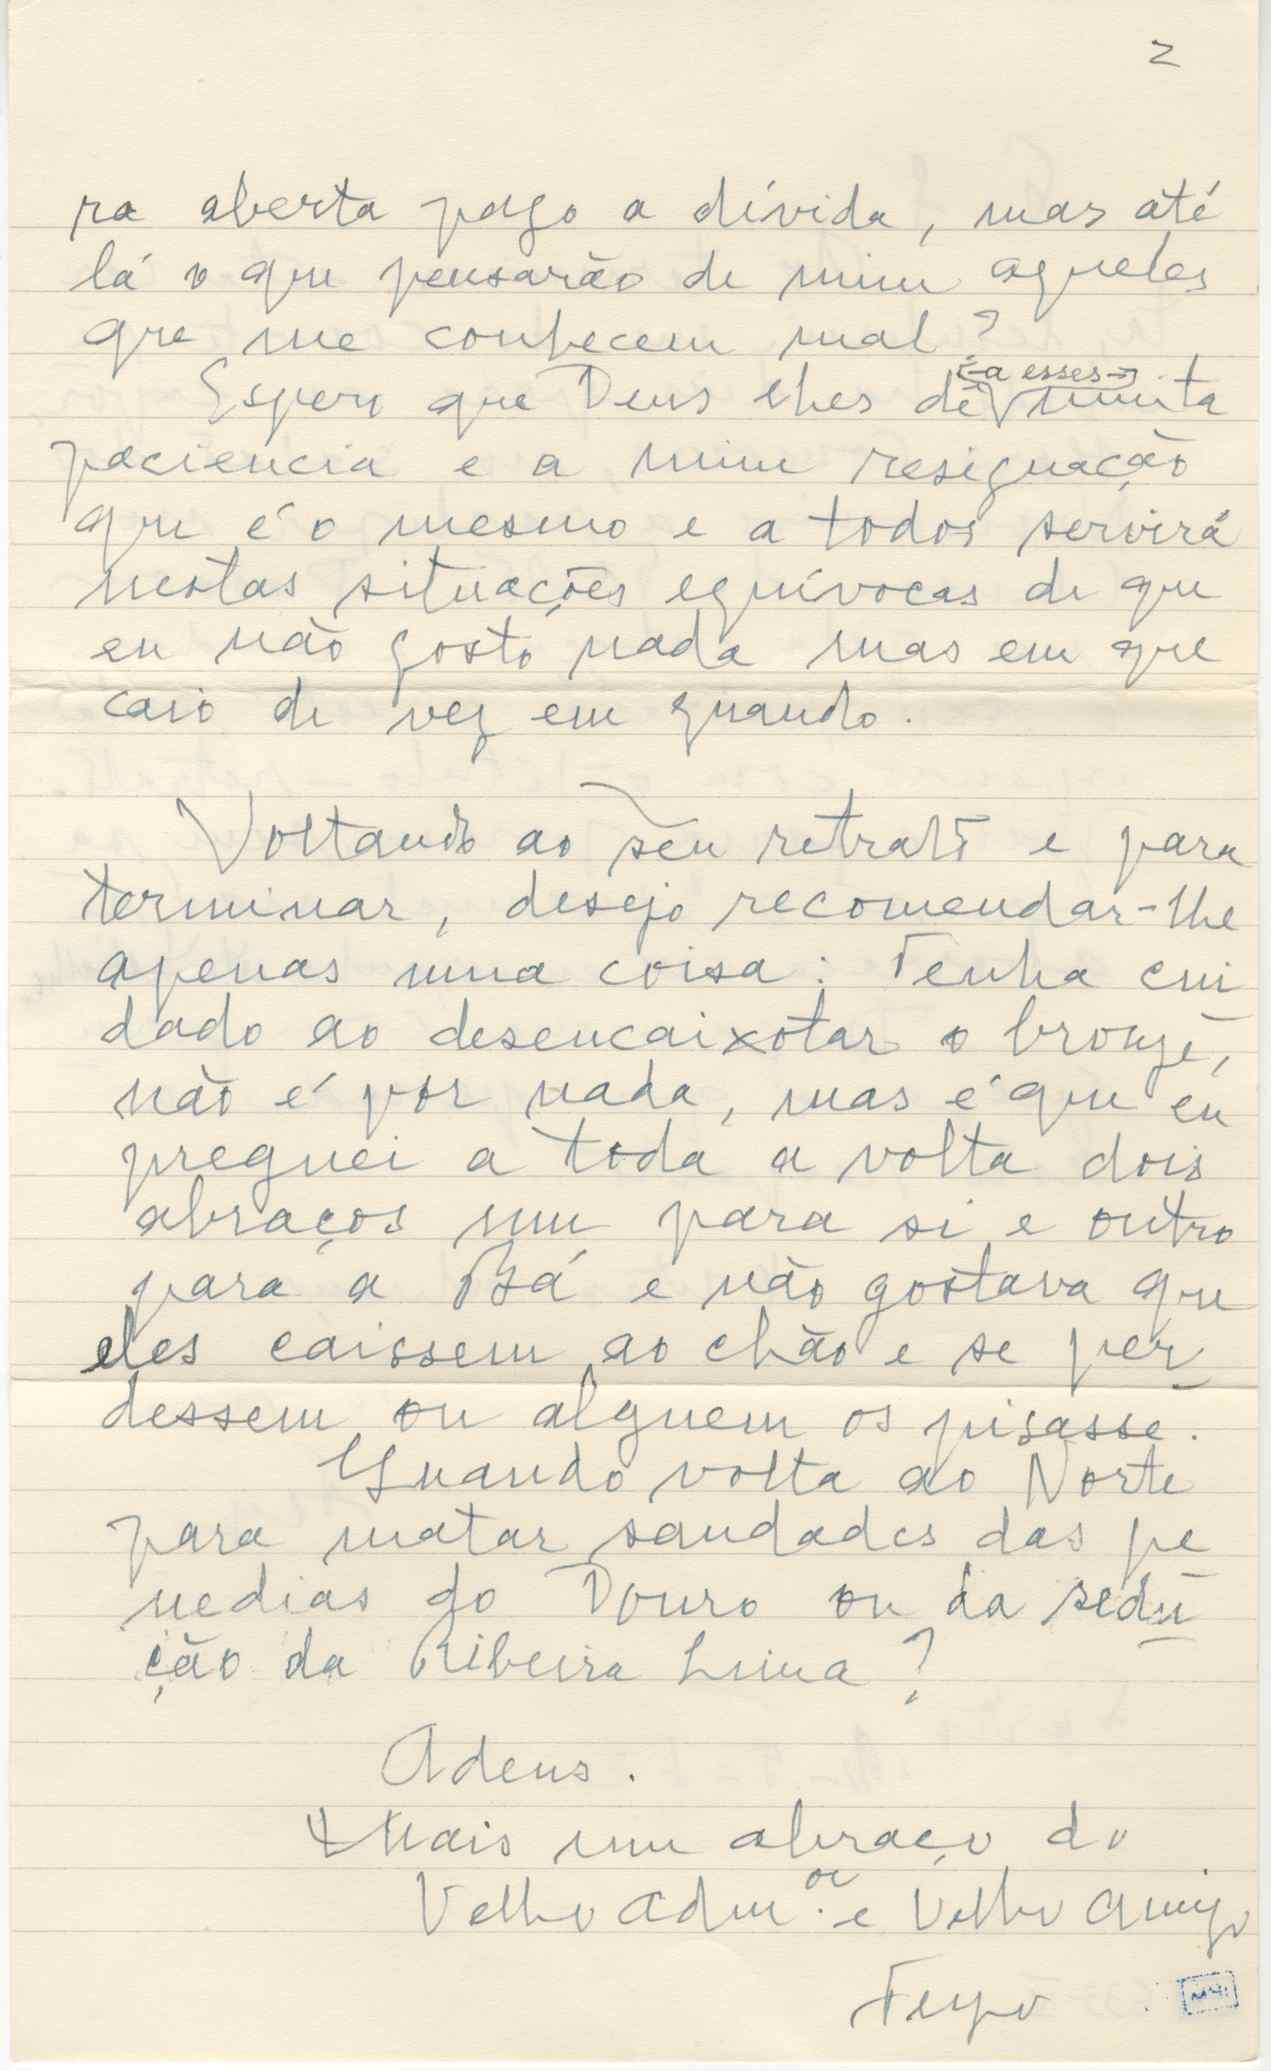 2
ra aberta pago a dívida, mas até
lá o que pensarão de mim aqueles
que me conhecem mal?
Espero que Deus lhes dê muita
<a esses>
paciencia e a mim resignação
que é o mesmo e a todos servirá
nestas situações equívocas de que
eu não gosto nada mas em que
caio de vez em quando.
Voltando ao seu retrato e para
terminar, desejo recomendar-lhe
apenas uma coisa: Tenha cui
dado ao desencaixotar o bronze,
não é por nada, mas é que eu
preguei a toda a volta dois
abraços um para si e outro
para a Bá e não gostava que
eles caissem ao chão e se per
dessem ou alguem os pisasse.
Quando volta ao Norte
para matar saudades das pe
nedias do Douro ou da sedu
ção da Ribeira Lima?
Adeus.
Mais um abraço do
Velho Adm.or e Velho Amigo